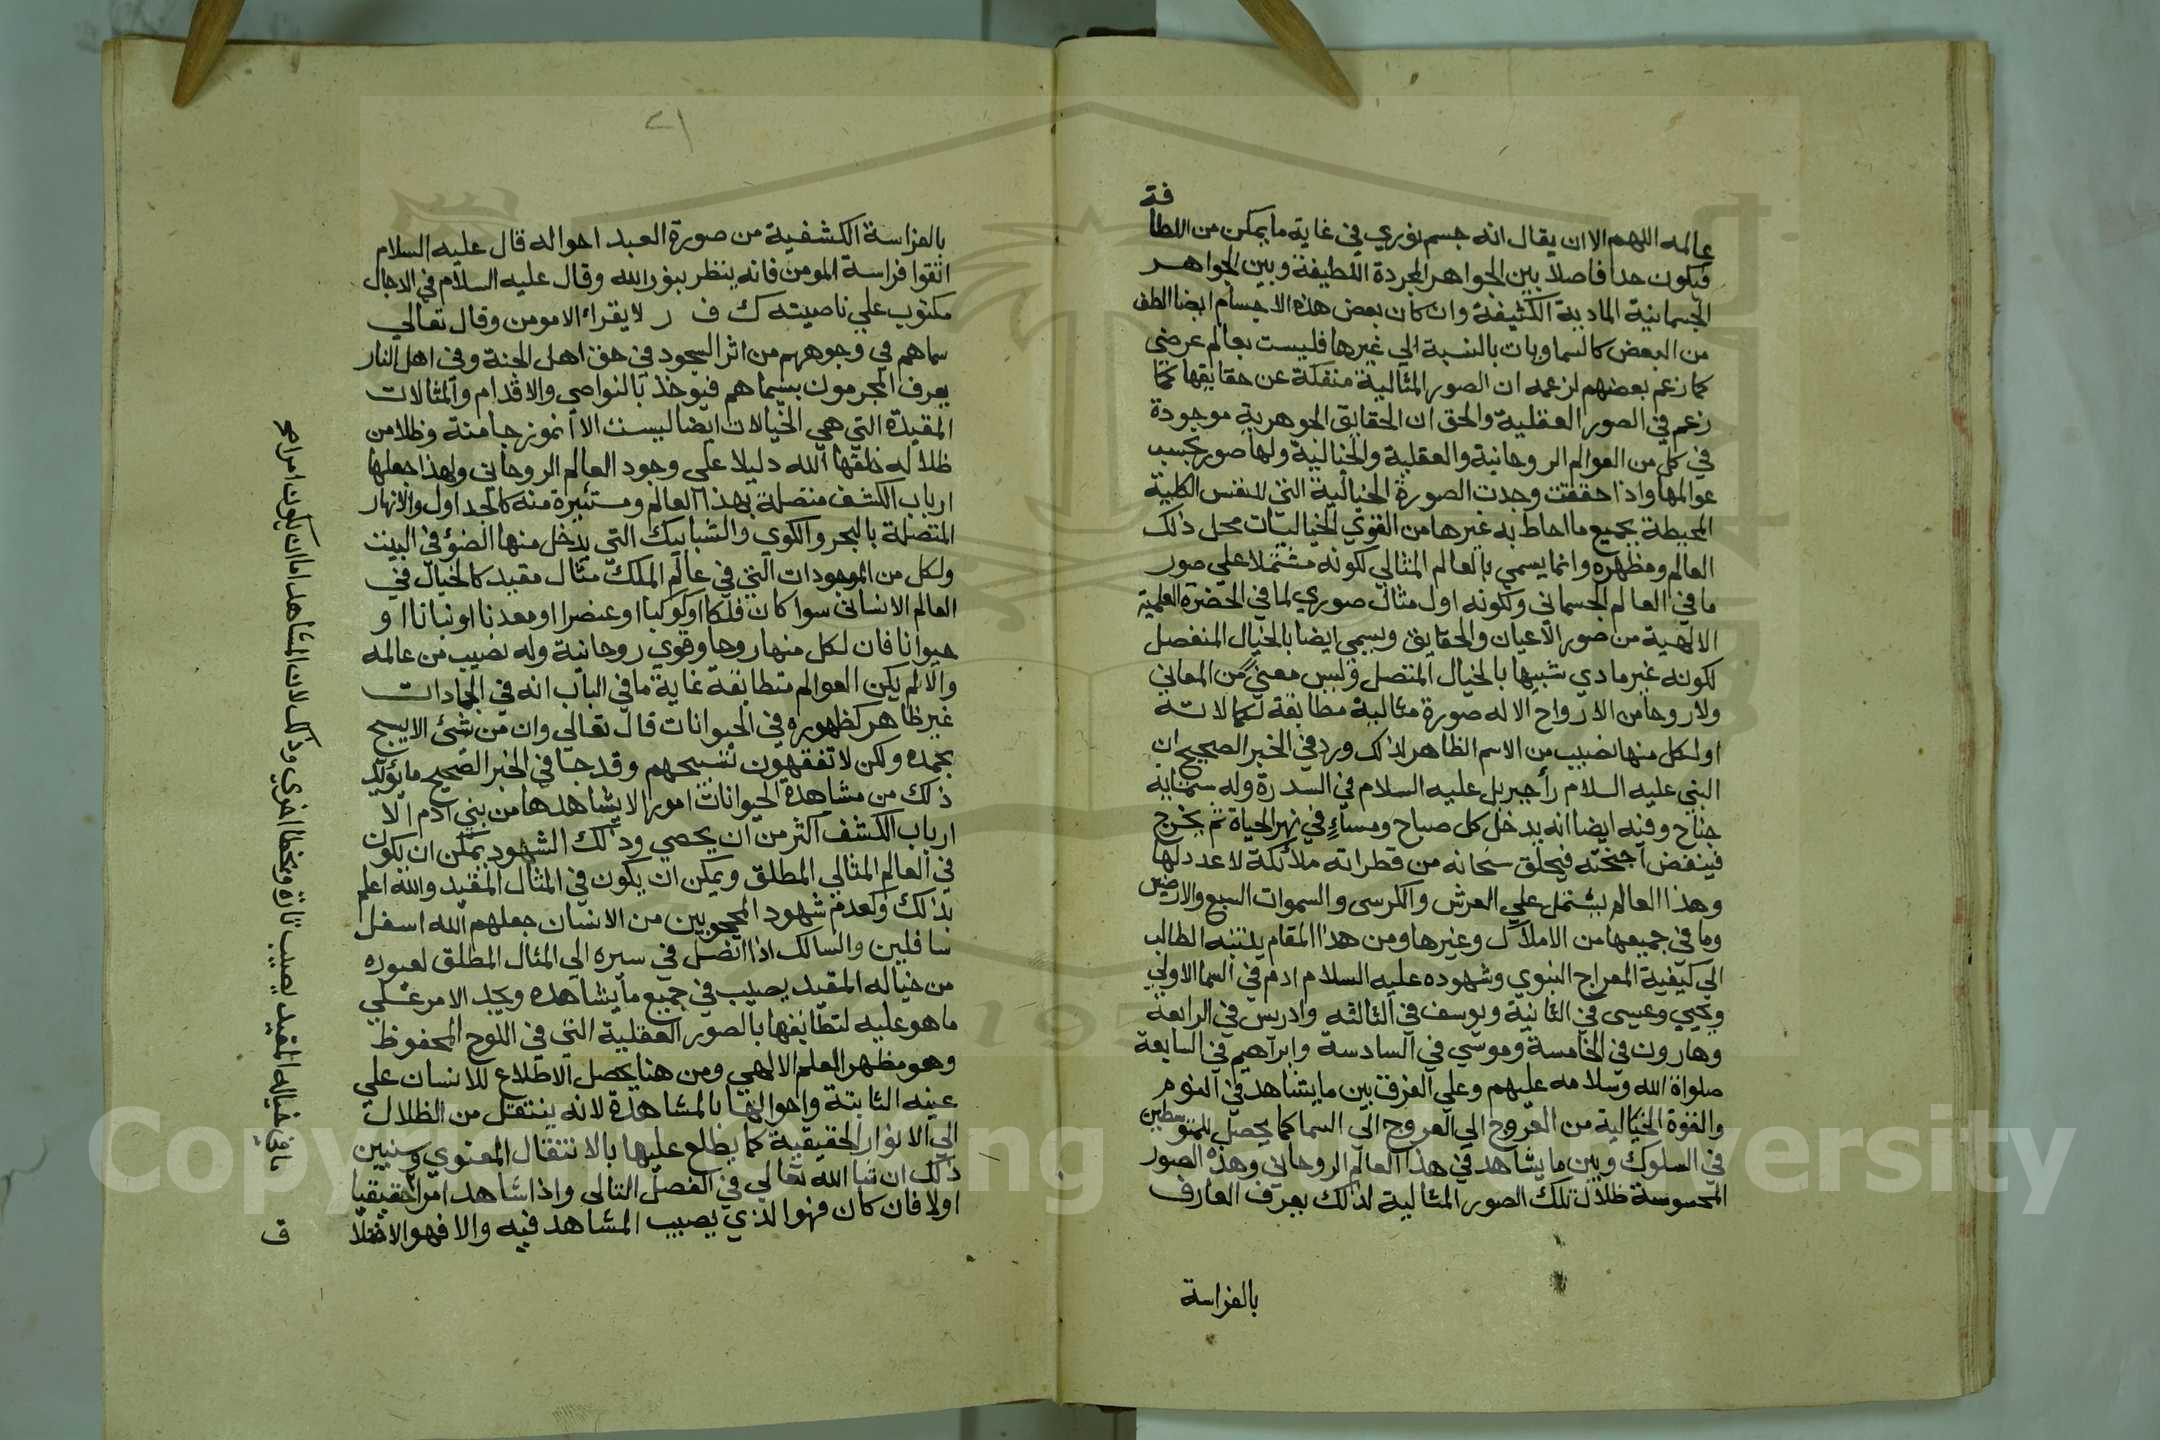 عالمه اللهم الا ان يقال انه جسم نوري في غاية ما يمكن من اللطافة
فيكون حدا فاصلا بين الجواهر المجردة اللطيفة وبين الجواهر
الجسمانية المادية الكثيفة وان كان بعض هذه الاجسام ايضا الطف
من البعض كالسماويات بالنسبة الي غيرها فليست بعالم عرضي
كما زعم بعضهم لزعمه ان الصور المثالية منفكة عن حقايقها كما
زعم في الصور العقلية والحق ان الحقايق الجوهرية موجودة
في كل من العوالم الروحانية والعقلية والخيالية ولها صور بحسب
عوالمها واذا حققت وجدت الصورة الخيالية التي للنفس الكلية
المحيطة بجميع ما احاط به غيرها من القوي الخياليات محل ذلك
العالم ومظهره وانما يسمي بالعالم المثالي لكونه مشتملا علي صور
ما في العالم الجسماني ولكونه اول مثال صوري لما في الحضرة العلمية
الالهية من صور الاعيان والحقايق ويسمي ايضا بالخيال المنفصل
لكونه غير مادي شبيها بالخيال المتصل فليس معني من المعاني
ولا روحا من الارواح الا له صورة مثالية مطابقة لكمالاته
اولكل منها نصيب من الاسم الظاهر لذلك ورد في الخبر الصحيح ان
النبي عليه السلام رأ جبريل عليه السلام في السدرة وله ستماية
جناح وفيه ايضا انه يدخل كل صباح ومساء في نهر الحياة ثم يخرج
فينفض اجنحته فيخلق سبحانه من قطراته ملائكة لا عدد لها
وهذا العالم يشتمل علي العرش والكرسي والسموات السبع والارضين
وما في جميعها من الاملاك وغيرها ومن هذا المقام يتنبه الطالب
الي كيفية المعراج النبوي وشهوده عليه السلام ادم في السما الاولي
ويحيي وعيسي في الثانية ويوسف في الثالثه وادريس في الرابعة
وهارون في الخامسة وموسي في السادسة وابراهيم في السابعة
صلواة الله وسلامه عليهم وعلي الفرق بين ما يشاهد في النوم
والقوة الخيالية من العروج الي العروج الي السما كما يحصل للمتوسطين
في السلوك وبين ما يشاهد في هذا العالم الروحاني وهذه الصور
المحسوسة ظلال تلك الصور المثالية لذلك يعرف العارف
بالفراسة
٢١
بالفراسة الكشفية من صورة العبد احواله قال عليه السلام
اتقوا فراسة المومن فانه ينظر بنور الله وقال عليه السلام في الدجال
مكتوب علي ناصيته ك ف ر لا يقراء الا مومن وقال تعالي
سماهم في وجوههم من اثر السجود في حق اهل الجنة وفي اهل النار
يعرف المجرمون بسيماهم فيوخذ بالنواصي والاقدام والمثالات
المقيدة التي هي الخيالات ايضا ليست الا انموزجا منه وظلا من
ظلاله خلقها الله دليلا علي وجود العالم الروحاني ولهذا جعلها
ارباب الكشف متصلة بهذا العالم ومستنيرة منه كالجداول والانهار
المتصلة بالبحر والكوي والشبابيك التي يدخل منها الضؤ في البيت
ولكل من الموجودات التي في عالم الملك مثال مقيد كالخيال في
العالم الانساني سوا كان فلكا او كوكبا او عنصرا او معدنا او نباتا او
حيوانا فان لكل منها روحا وقوي روحانية وله نصيب من عالمه
والا لم يكن العوالم متطابقة غاية ما في الباب انه في الجمادات
غير ظاهر كظهوره في الحيوانات قال تعالي وان من شئ الا يسبح
بحمده ولكن لا تفقهون تسبيحهم وقد جا في الخبر الصحيح ما يؤيد
ذلك من مشاهدة الحيوانات امورا لا يشاهدها من بني ادم الا
ارباب الكشف اكثر من ان يحصي وذلك الشهود يمكن ان يكون
في العالم المثالي المطلق ويمكن ان يكون في المثال المقيد والله اعلم
بذلك ولعدم شهود المحجوبين من الانسان جعلهم الله اسفل
سافلين والسالك اذا اتصل في سيره الي المثال المطلق لعبوره
من خياله المقيد يصيب في جميع ما يشاهده ويجد الامر علي
ما هو عليه لتطابقها بالصور العقلية التي في اللوح المحفوظ
وهو مظهر العلم الالهي ومن هنا يحصل الاطلاع للانسان علي
عينه الثابتة واحوالها بالمشاهدة لانه ينتقل من الظلال
الي الانوار الحقيقية كما يطلع عليها بالانتقال المعنوي وسنبين
ذلك ان شا الله تعالي في الفصل التالي واذا شاهد امرا حقيقيا
اولا فان كان فهوا لذي يصيب المشاهد فيه والا فهو الاختلا
ق
ما في خياله المقيد يصيب تارة ويخطا اخري وذلك لان المشاهد اما ان يكون امرا
Copyright © King Saud University
1957